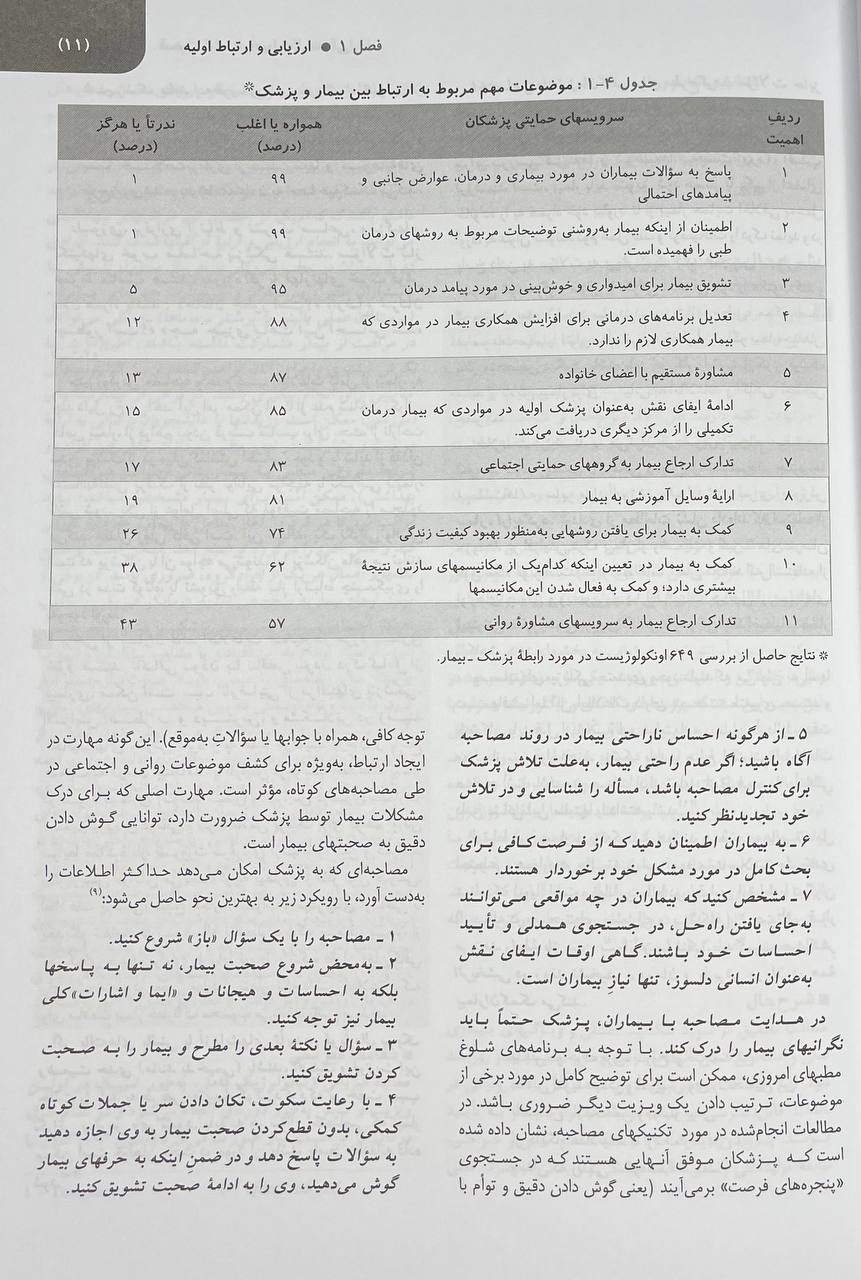 فصل ۱ ● ارزیابی و ارتباط اولیه
(۱۱)
جدول ۴-۱ : موضوعات مهم مربوط به ارتباط بین بیمار و پزشک*
ردیفِ اهمیت	سرویسهای حمایتی پزشکان	همواره یا اغلب (درصد)	ندرتاً یا هرگز (درصد)
۱	پاسخ به سؤالات بیماران در مورد بیماری و درمان، عوارض جانبی و	۹۹	۱
پیامدهای احتمالی
۲	اطمینان از اینکه بیمار به‌روشنی توضیحات مربوط به روشهای درمان	۹۹	۱
طبی را فهمیده است.
۳	تشویق بیمار برای امیدواری و خوش‌بینی در مورد پیامد درمان	۹۵	۵
۴	تعدیل برنامه‌های درمانی برای افزایش همکاری بیمار در مواردی که	۸۸	۱۲
بیمار همکاری لازم را ندارد.
۵	مشاورهٔ مستقیم با اعضای خانواده	۸۷	۱۳
۶	ادامهٔ ایفای نقش به‌عنوان پزشک اولیه در مواردی که بیمار درمان	۸۵	۱۵
تکمیلی را از مرکز دیگری دریافت می‌کند.
۷	تدارک ارجاع بیمار به گروههای حمایتی اجتماعی	۸۳	۱۷
۸	ارایهٔ وسایل آموزشی به بیمار	۸۱	۱۹
۹	کمک به بیمار برای یافتن روشهایی به‌منظور بهبود کیفیت زندگی	۷۴	۲۶
۱۰	کمک به بیمار در تعیین اینکه کدام‌یک از مکانیسمهای سازش نتیجهٔ	۶۲	۳۸
بیشتری دارد؛ و کمک به فعال شدن این مکانیسمها
۱۱	تدارک ارجاع بیمار به سرویسهای مشاورهٔ روانی	۵۷	۴۳
* نتایج حاصل از بررسی ۶۴۹ اونکولوژیست در مورد رابطهٔ پزشک ـ بیمار.
۵ ـ از هرگونه احساس ناراحتی بیمار در روند مصاحبه
آگاه باشید؛ اگر عدم راحتی بیمار، به‌علت تلاش پزشک
برای کنترل مصاحبه باشد، مسأله را شناسایی و در تلاش
خود تجدیدنظر کنید.
۶ ـ به بیماران اطمینان دهید که از فرصت کافی برای
بحث کامل در مورد مشکل خود برخوردار هستند.
۷ ـ مشخص کنید که بیماران در چه مواقعی می‌توانند
به‌جای یافتن راه‌حل، در جستجوی همدلی و تأیید
احساسات خود باشند. گاهی اوقات ایفای نقش
به‌عنوان انسانی دلسوز، تنها نیازِ بیماران است.
در هدایت مصاحبه با بیماران، پزشک حتماً باید
نگرانیهای بیمار را درک کند. با توجه به برنامه‌های شلوغ
مطبهای امروزی، ممکن است برای توضیح کامل در مورد برخی از
موضوعات، ترتیب دادن یک ویزیت دیگر ضروری باشد. در
مطالعات انجام‌شده در مورد تکنیکهای مصاحبه، نشان داده شده
است که پزشکان موفق آنهایی هستند که در جستجوی
«پنجره‌های فرصت» برمی‌آیند (یعنی گوش دادن دقیق و توأم با
توجه کافی، همراه با جوابها یا سؤالاتِ به‌موقع). این گونه مهارت در
ایجاد ارتباط، به‌ویژه برای کشف موضوعات روانی و اجتماعی در
طی مصاحبه‌های کوتاه، مؤثر است. مهارت اصلی که برای درک
مشکلات بیمار توسط پزشک ضرورت دارد، توانایی گوش دادن
دقیق به صحبتهای بیمار است.
مصاحبه‌ای که به پزشک امکان می‌دهد حداکثر اطلاعات را
به‌دست آورد، با رویکرد زیر به بهترین نحو حاصل می‌شود:(۹)
۱ ـ مصاحبه را با یک سؤال «باز» شروع کنید.
۲ ـ به‌محض شروع صحبت بیمار، نه تنها به پاسخها
بلکه به احساسات و هیجانات و «ایما و اشارات» کلی
بیمار نیز توجه کنید.
۳ ـ سؤال یا نکتهٔ بعدی را مطرح و بیمار را به صحبت
کردن تشویق کنید.
۴ ـ با رعایت سکوت، تکان دادن سر یا جملات کوتاه
کمکی، بدون قطع‌کردن صحبت بیمار به وی اجازه دهید
به سؤالات پاسخ دهد و در ضمنِ اینکه به حرفهای بیمار
گوش می‌دهید، وی را به ادامهٔ صحبت تشویق کنید.